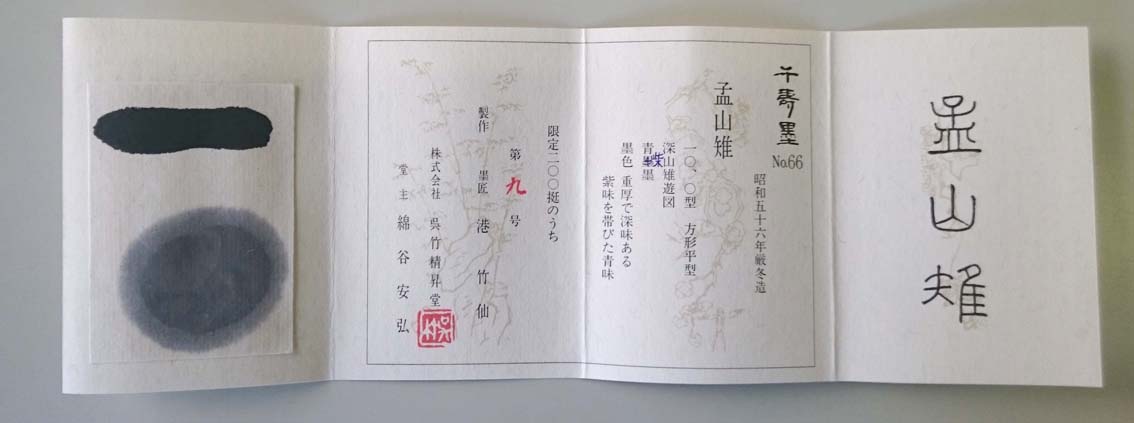 孟山雉
千寿墨 No.66
昭和五十六年厳冬造
孟山雉
一〇、〇型 方形平型
深山雉遊図
青柴墨
墨色 重厚で深味ある
紫味を帯びた青味
限定二〇〇挺のうち
第九号
製作 墨匠 港竹仙
株式会社 呉竹精昇堂
堂主 綿谷安弘